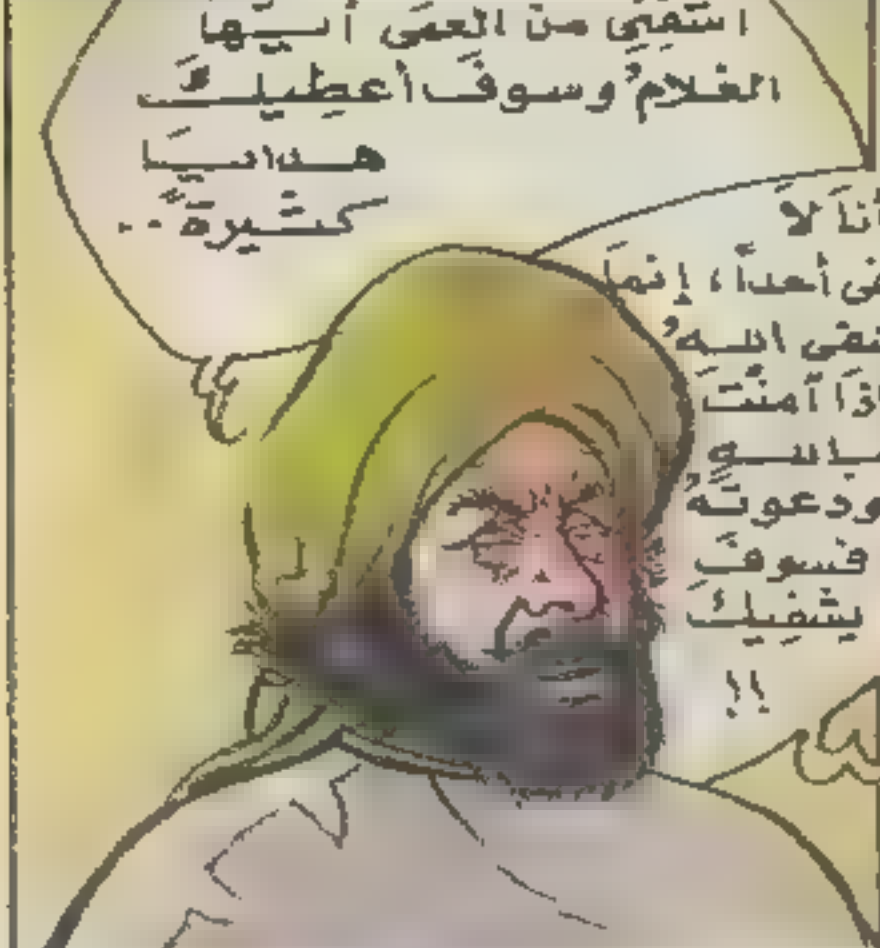 اشْفِنِي منَ العمَى أيّها
الغلامُ وسوفَ أعطِيكَ
هدايَا
كثيرةً..
أناَ لاَ
أحداً، إنّما
اللهُ
آمنْتَ
باللهِ
ودعوتَهُ
فسوفَ
يشفِيكَ
!!